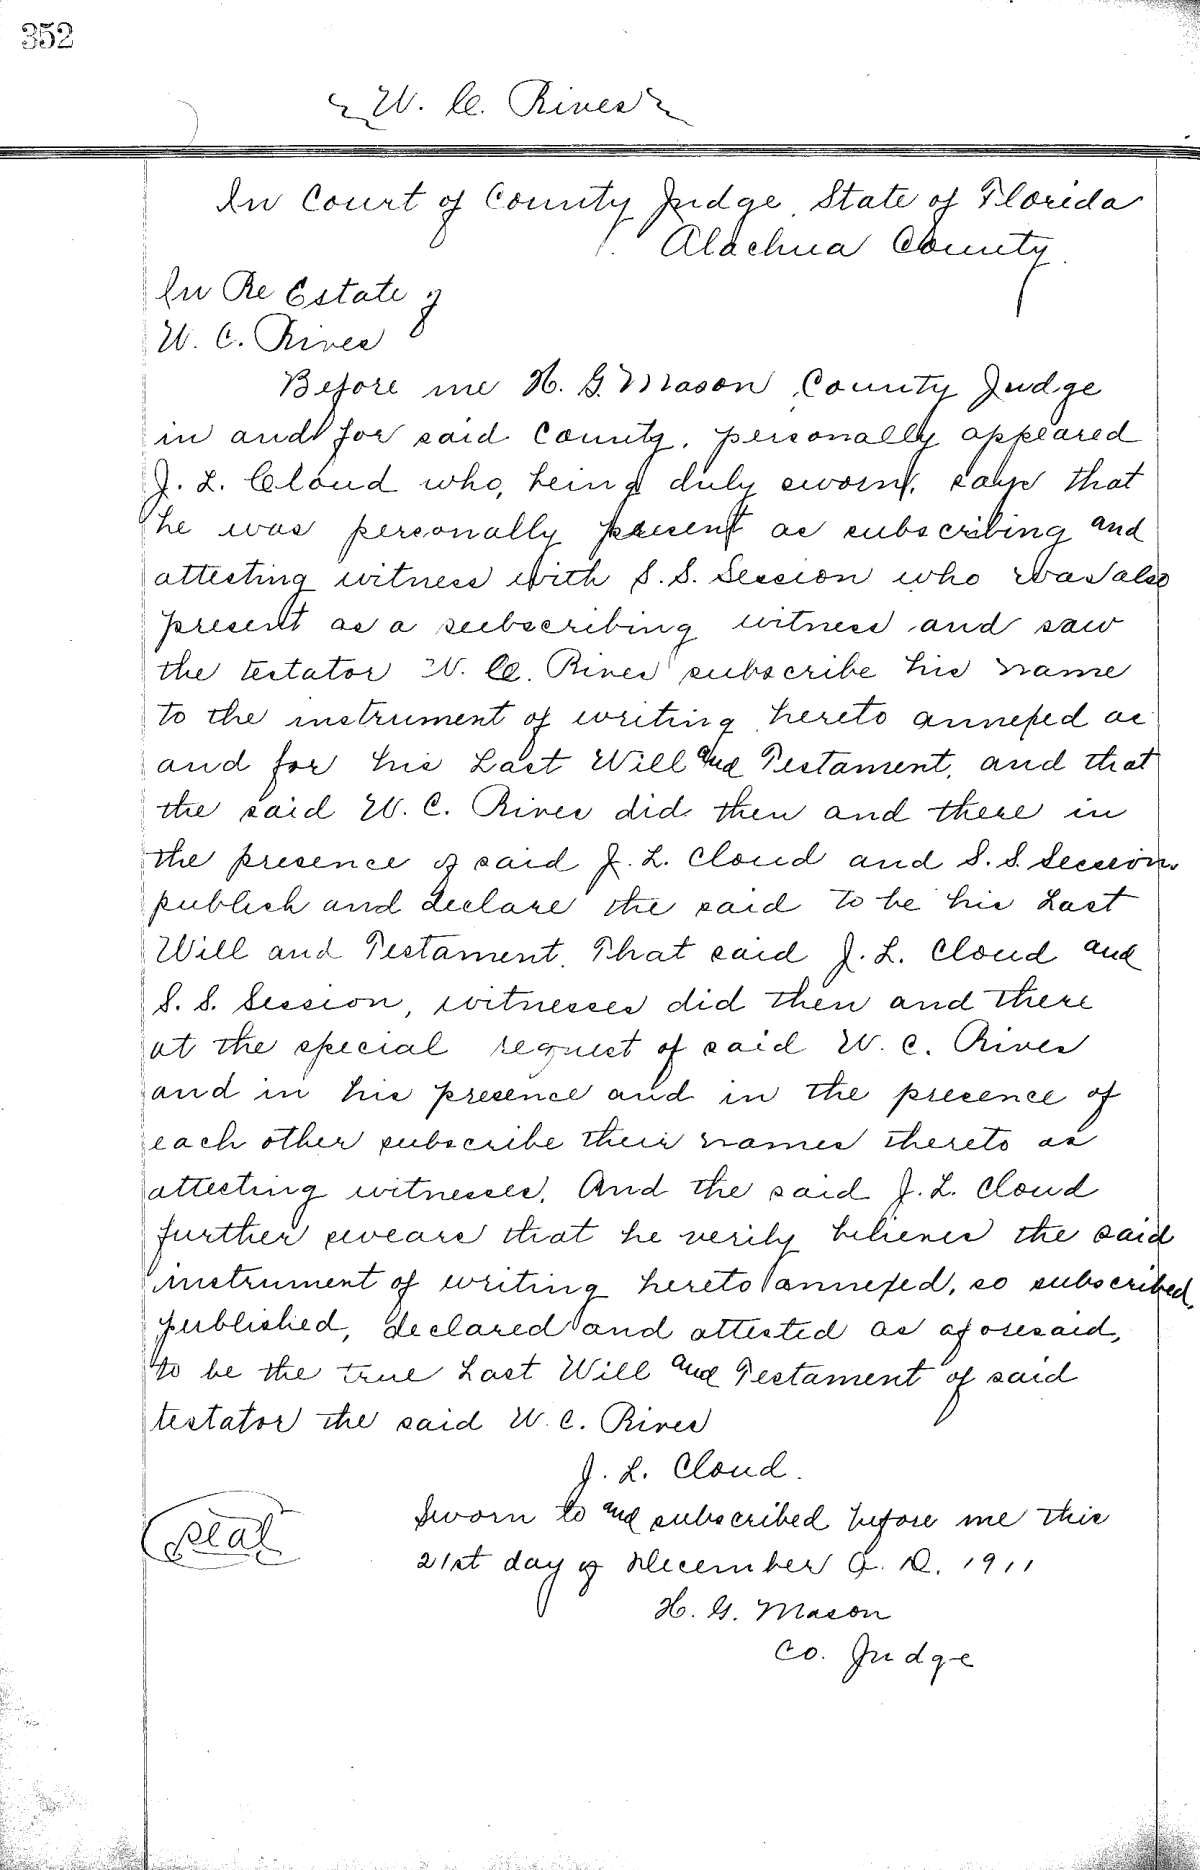 352
W. C. Rives
In Court of County Judge, State of Florida
Alachua County.
In Re Estate of
W. C. Rives
Before me H. G. Mason, County Judge
in and for said County, personally appeared
J. L. Cloud who, being duly sworn, says that
he was personally present as subscribing and
attesting witness with S. S. Session who was also
present as a subscribing witness and saw
the testator W. C. Rives subscribe his name
to the instrument of writing hereto annexed as
and for his Last Will and Testament, and that
the said W. C. Rives did then and there in
the presence of said J. L. Cloud and S. S. Session
publish and declare the said to be his Last
Will and Testament. That said J. L. Cloud and
S. S. Session, witnesses did then and there
at the special request of said W. C. Rives
and in his presence and in the presence of
each other subscribe their names thereto as
attesting witnesses. And the said J. L. Cloud
further swears that he verily believes the said
instrument of writing hereto annexed, so subscribed,
published, declared and attested as aforesaid,
to be the true Last Will and Testament of said
testator the said W. C. Rives
J. L. Cloud.
Seal
Sworn to and subscribed before me this
21st day of December A. D. 1911
H. G. Mason
Co. Judge